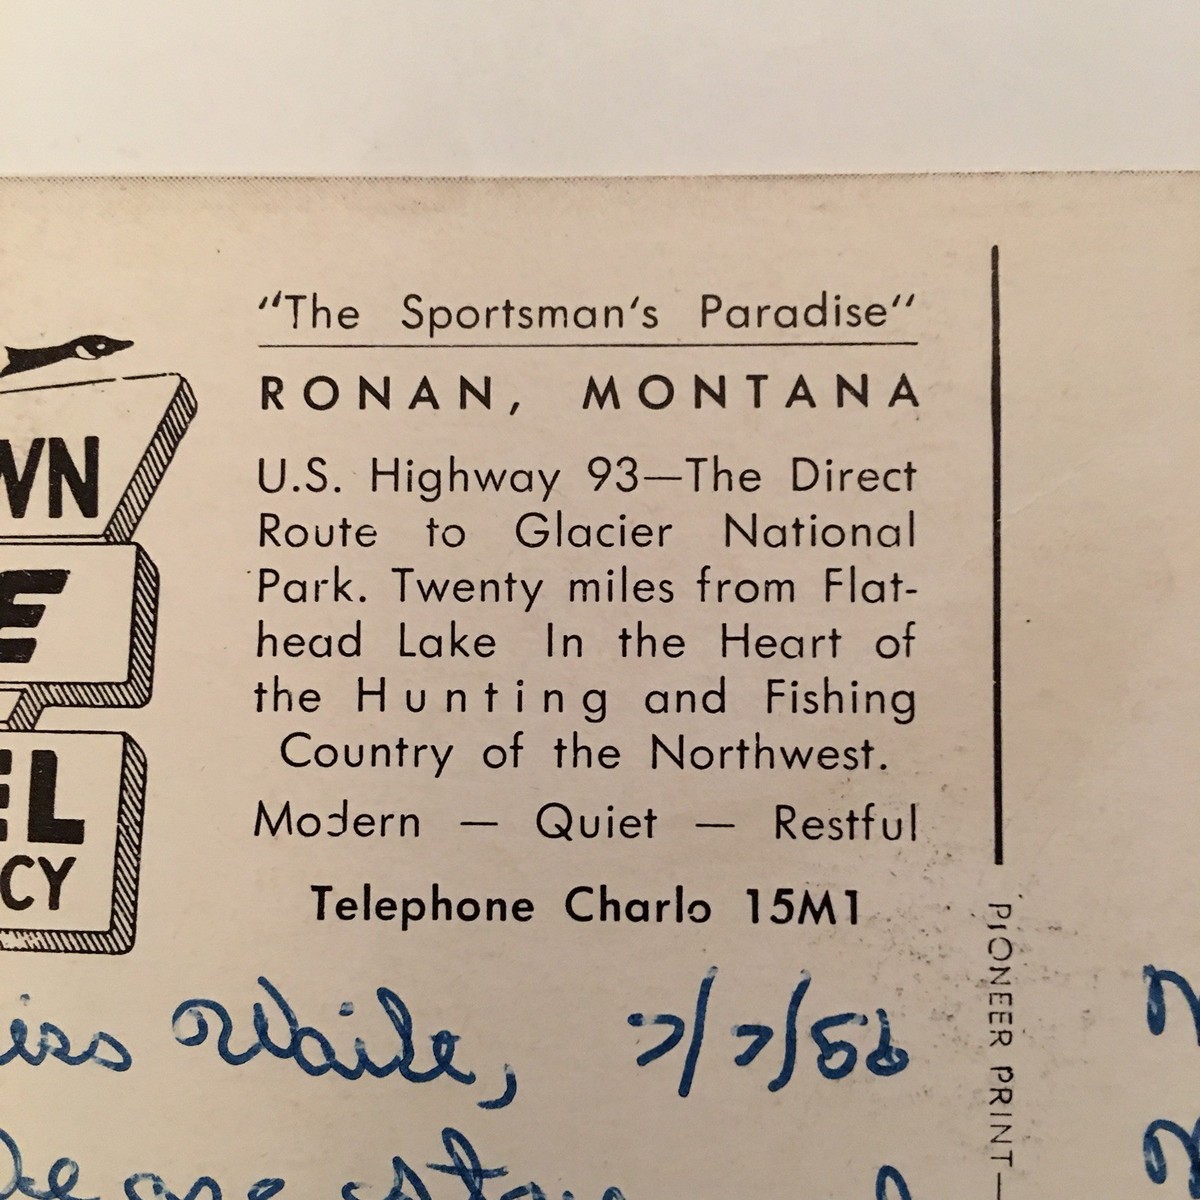 "The Sportsman's Paradise"
RONAN, MONTANA
U.S. Highway 93—The Direct
Route to Glacier National
Park. Twenty miles from Flat-
head Lake In the Heart of
the Hunting and Fishing
Country of the Northwest.
Modern — Quiet — Restful
Telephone Charlo 15M1
WN
E
EL
CY
iss Waite, 7/7/56
We are
PIONEER PRINT—